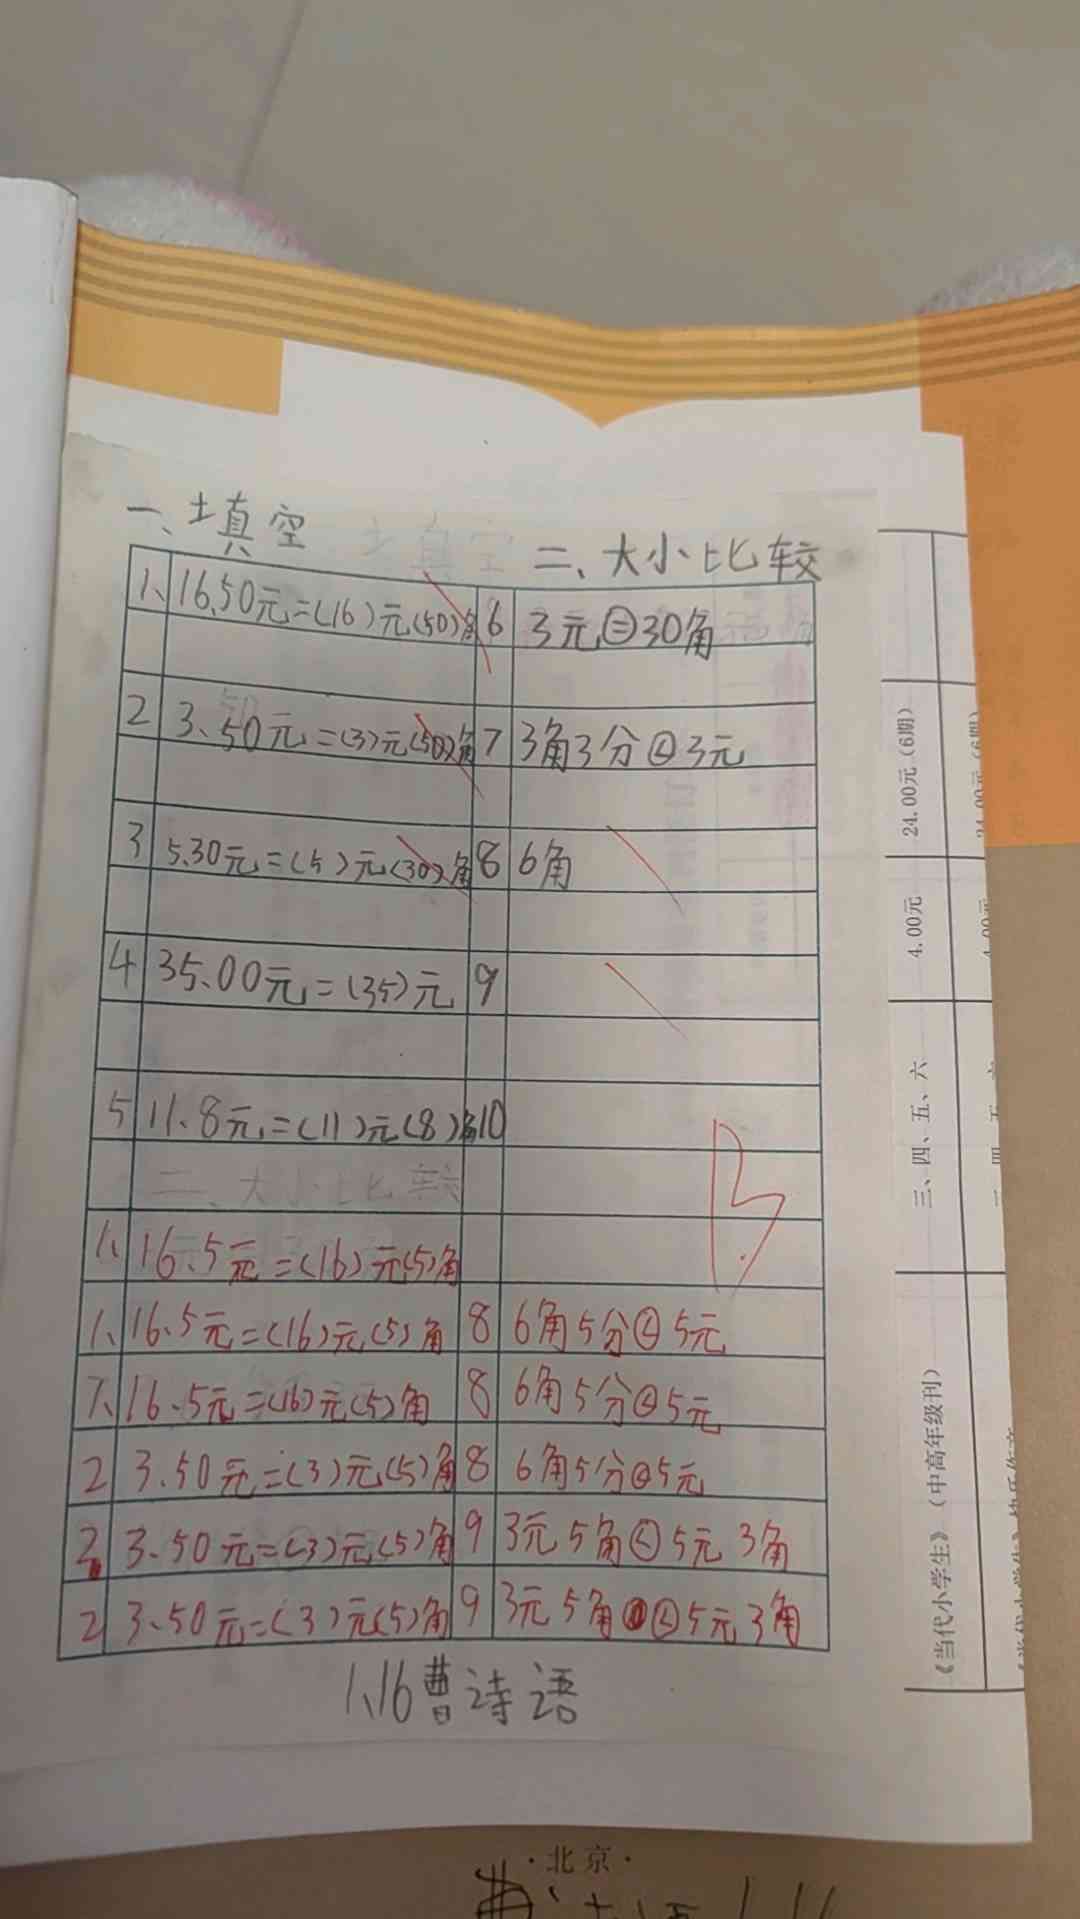 一、填空
二、大小比较
1、16.50元=(16)元(50)角
6 3元=30角
2 3.50元=(3)元(50)角
7 3角3分<3元
3 5.30元=(5)元(30)角
8 6角
4 35.00元=(35)元
9
5 11.8元=(11)元(8)角
10
二、大小比较
1、16.5元=(16)元(5)角
1、16.5元=(16)元(5)角
8 6角5分<5元
1、16.5元=(16)元(5)角
8 6角5分<5元
2 3.50元=(3)元(5)角
8 6角5分<5元
2 3.50元=(3)元(5)角
9 3元5角<5元3角
2 3.50元=(3)元(5)角
9 3元5角<5元3角
B
1.16曹诗语
《当代小学生》(中高年级刊)
三、四、五、六
4.00元
24.00元(6期)
·北京·